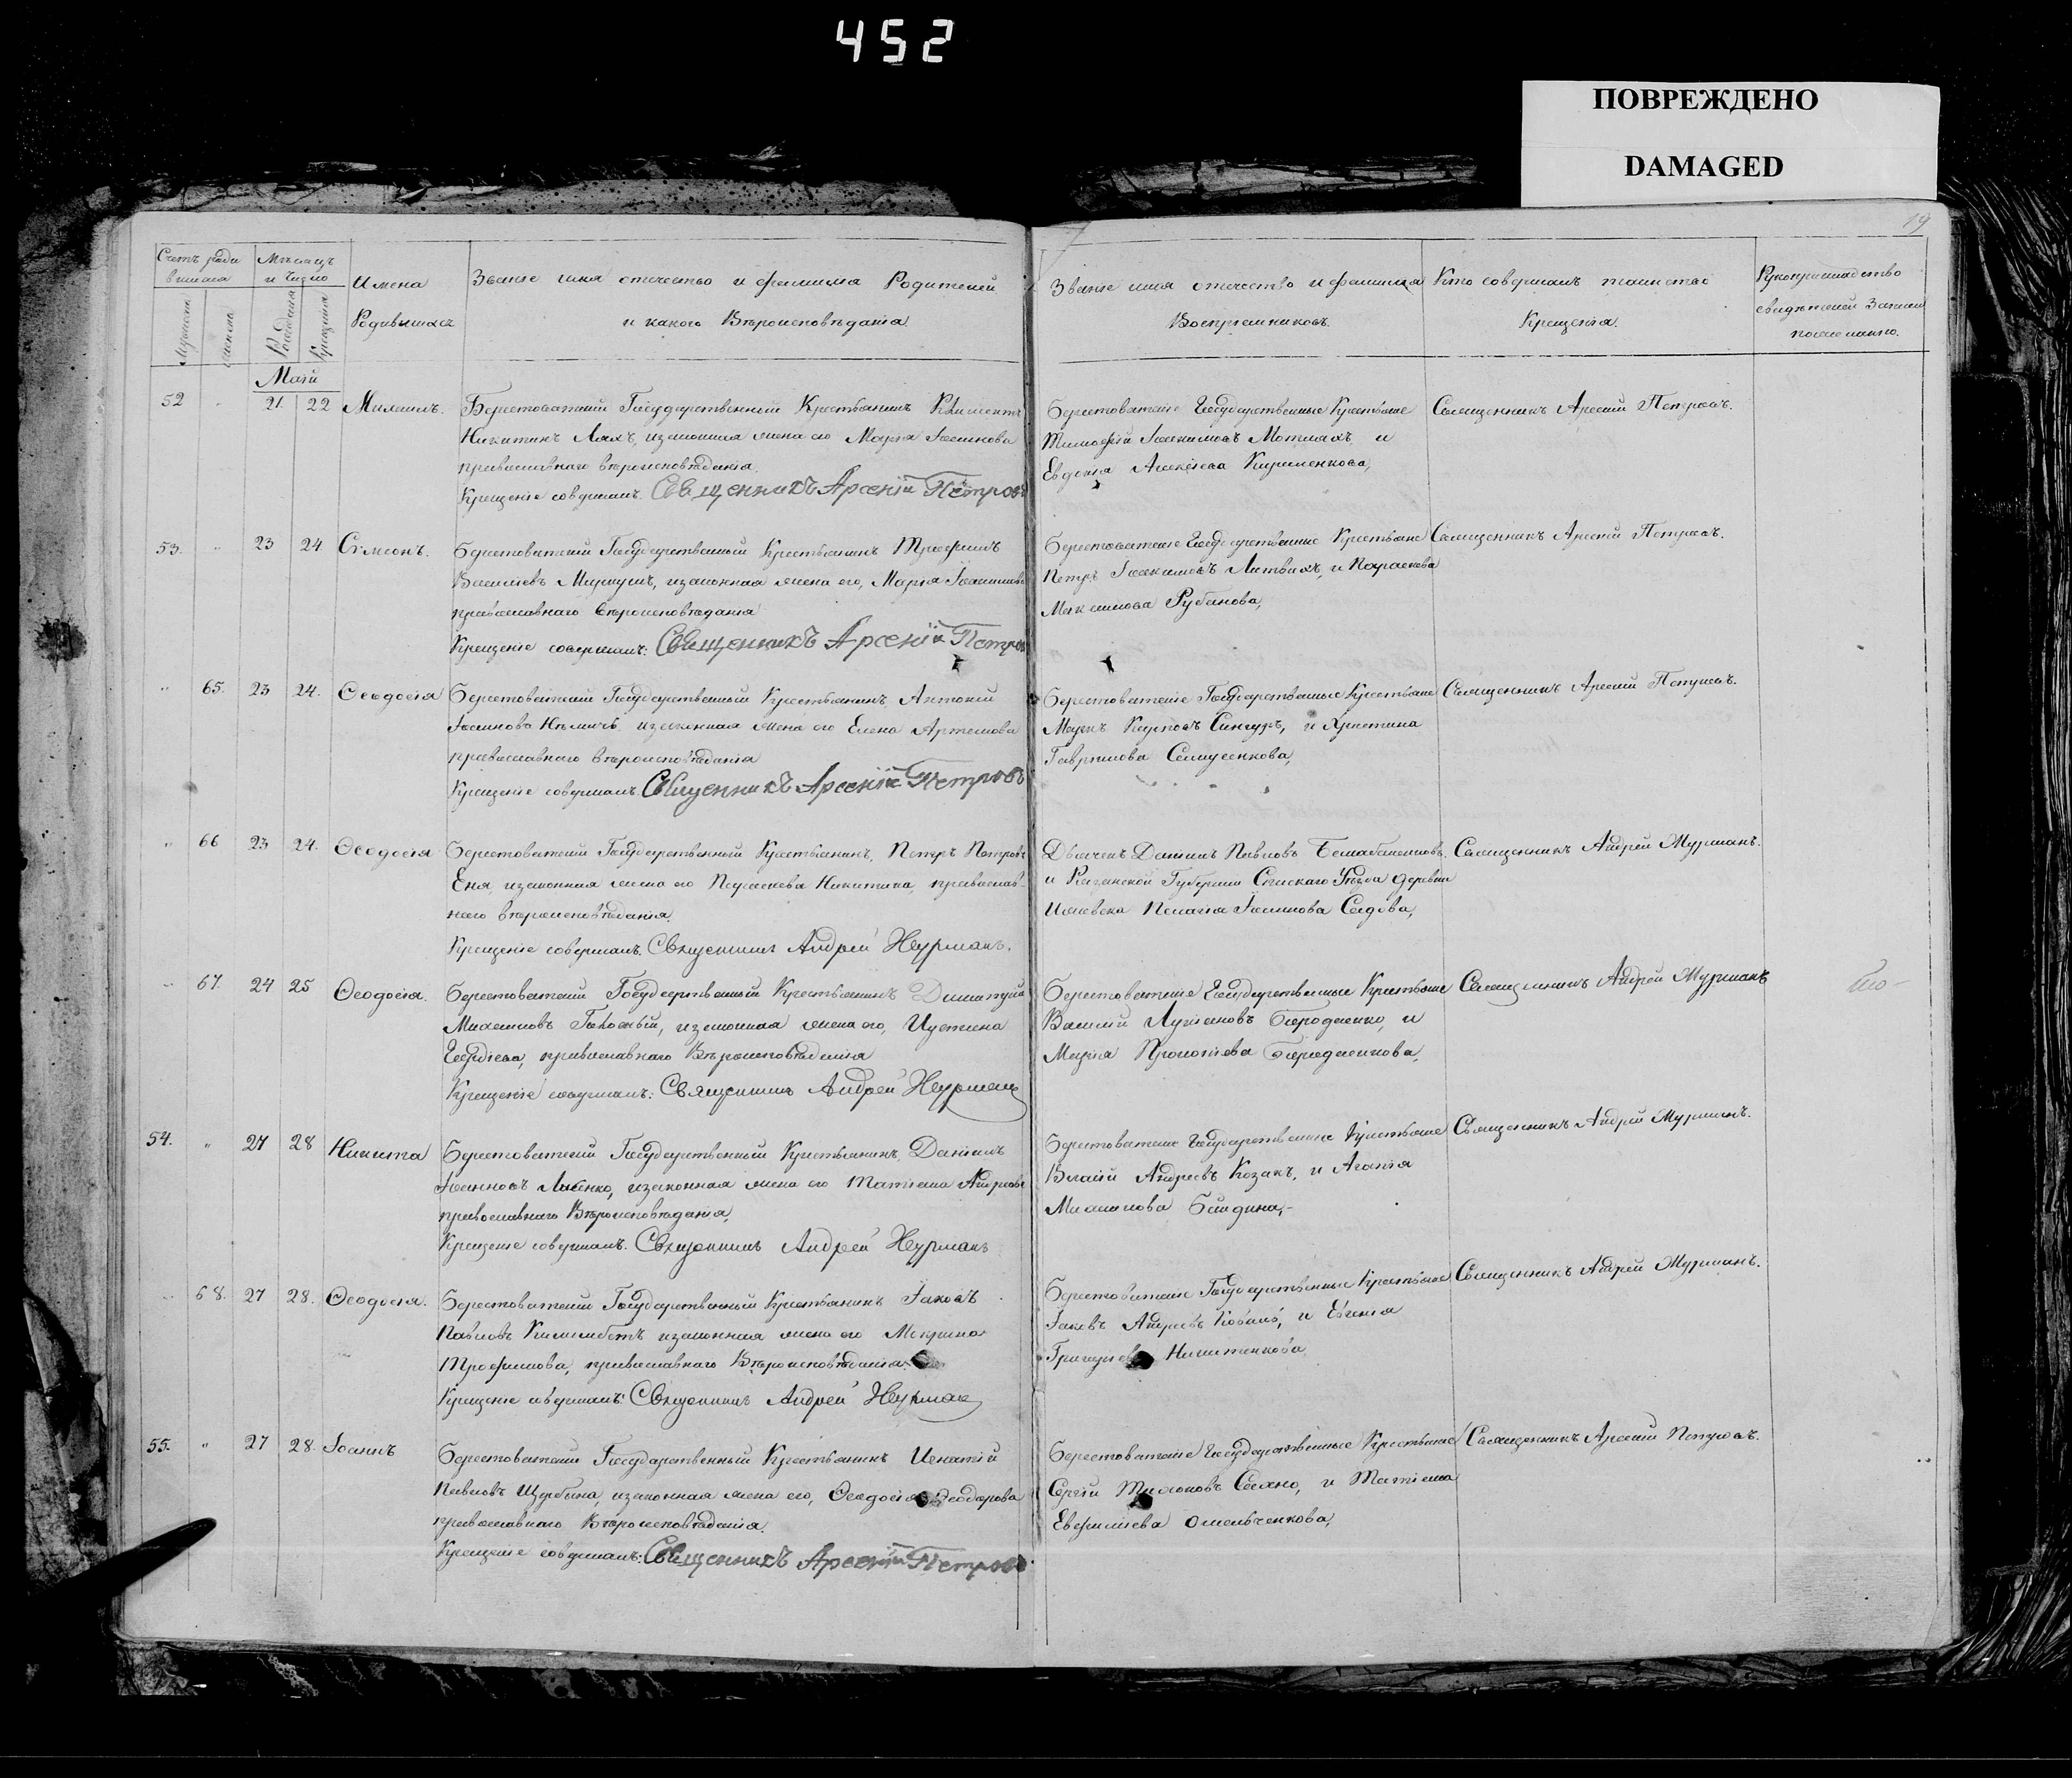 452
ПОВРЕЖДЕНО
DAMAGED
19
Счетъ роди
вшихся
Мѣсяцъ
и число
Имена
Родившихся
Званіе имя отечество и фамилія Родителей
и какого Вѣроисповѣданія.
Званіе имя отечество и фамилія
Воспріемниковъ.
Кто совершалъ таинство
Крещенія.
Рукоприкладство
свидѣтелей записи
по желанію.
Мужеска
женска
Рожденія
Крещенія
Маій
52 " 21. 22 Михаилъ.
Берестоватскій Государственный Крестьянинъ Климентъ
Никитинъ Ляхъ, изаконная жена его Марія Іоакимова
православнаго вѣроисповѣданія.
Крещеніе совершалъ. Священникъ Арсеній Петровъ
Берестоватскіе Государственные Крестьяне
Тимофей Іоакимовъ Мотляхъ, и
Евдокія Алексіева Кириченкова,
Священникъ Арсеній Петровъ.
53. " 23 24 Симеонъ.
Берестоватскій Государственный Крестьянинъ Трофимъ
Василіевъ изаконная жена его, Марія
православнаго вѣроисповѣданія
Крещеніе совершалъ: Священникъ Арсеній Петровъ
Берестоватскіе Государственные Крестьяне
Петръ Іоакимовъ Литвякъ, и Параскева
Максимова Рубанова,
Священникъ Арсеній Петровъ.
" 65. 23 24. Ѳеодосія
Берестоватскій Государственный Крестьянинъ Антоній
Іоанновъ изаконная жена его Елена Артемова
православнаго вѣроисповѣданія
Крещеніе совершалъ Священникъ Арсеній Петровъ
Берестоватскіе Государственные Крестьяне
Маркъ Карповъ Сингуръ, и Христина
Гавріилова
Священникъ Арсеній Петровъ.
" 66 23 24. Ѳеодосія
Берестоватскій Государственный Крестьянинъ, Петръ Петровъ
Еня, изаконная жена его Параскева Никитина, православ-
наго вѣроисповѣданія
Крещеніе совершалъ. Священникъ Андрей Журманъ.
Даніилъ Павловъ
и Рязанской Губерніи Уѣзда деревни
Пелагія Іоакимова Седова,
Священникъ Андрей Журманъ.
" 67. 24 25 Ѳеодосія.
Берестоватскій Государственный Крестьянинъ Димитрій
Михаиловъ изаконная жена его, Иустина
православнаго Вѣроисповѣданія
Крещеніе совершалъ: Священникъ Андрей Журманъ
Берестоватскіе Государственные Крестьяне
Василій Лукіановъ Бородаенко, и
Марія Прокопіева Бородаенкова,
Священникъ Андрей Журманъ
54. " 27 28 Никита
Берестоватскій Государственный Крестьянинъ, Даніилъ
Іоанновъ изаконная жена его Татіана Андреева
православнаго Вѣроисповѣданія,
Крещеніе совершалъ. Священникъ Андрей Журманъ
Берестоватскіе Государственные Крестьяне
Власій Андреевъ Козакъ, и Агапія
Михаилова Байдина,-
Священникъ Андрей Журманъ.
" 68. 27 28. Ѳеодосія.
Берестоватскій Государственный Крестьянинъ Іаковъ
Павловъ изаконная жена его Макрина
Трофимова, православнаго Вѣроисповѣданія.
Крещеніе совершалъ: Священникъ Андрей Журманъ
Берестоватскіе Государственные Крестьяне
Іаковъ Андреевъ и Евгенія
Григоріева Никитенкова
Священникъ Андрей Журманъ.
55. " 27 28. Іоаннъ
Берестоватскій Государственный Крестьянинъ Игнатій
Павловъ Щербина, изаконная жена его, Ѳеодосія Ѳеодорова
православнаго Вѣроисповѣданія.
Крещеніе совершалъ: Священникъ Арсеній Петровъ
Берестоватскіе Государственные Крестьяне
Сергій и Татіана
Евфиміева Омельченкова,
Священникъ Арсеній Петровъ.